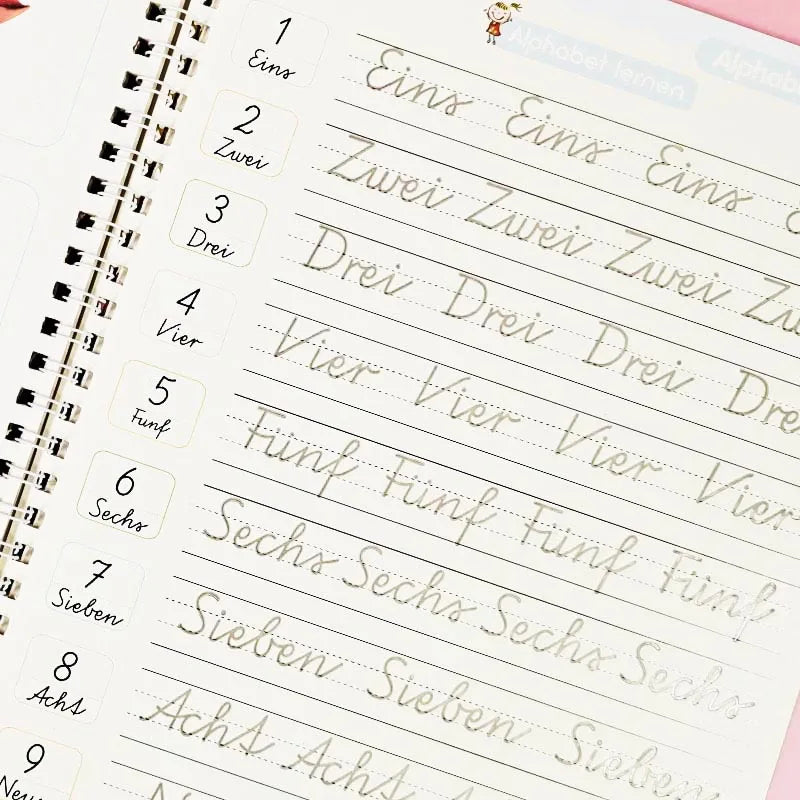 Alphabet lernen
1
Eins
Eins Eins Eins
2
Zwei
Zwei Zwei Zwei
3
Drei
Drei Drei Drei Dre
4
Vier
Vier Vier Vier Vier
5
Funf
Fünf Fünf Fünf Fünf
6
Sechs
Sechs Sechs Sechs Sechs
7
Sieben
Sieben Sieben Sieben
8
Acht
Acht Acht
9